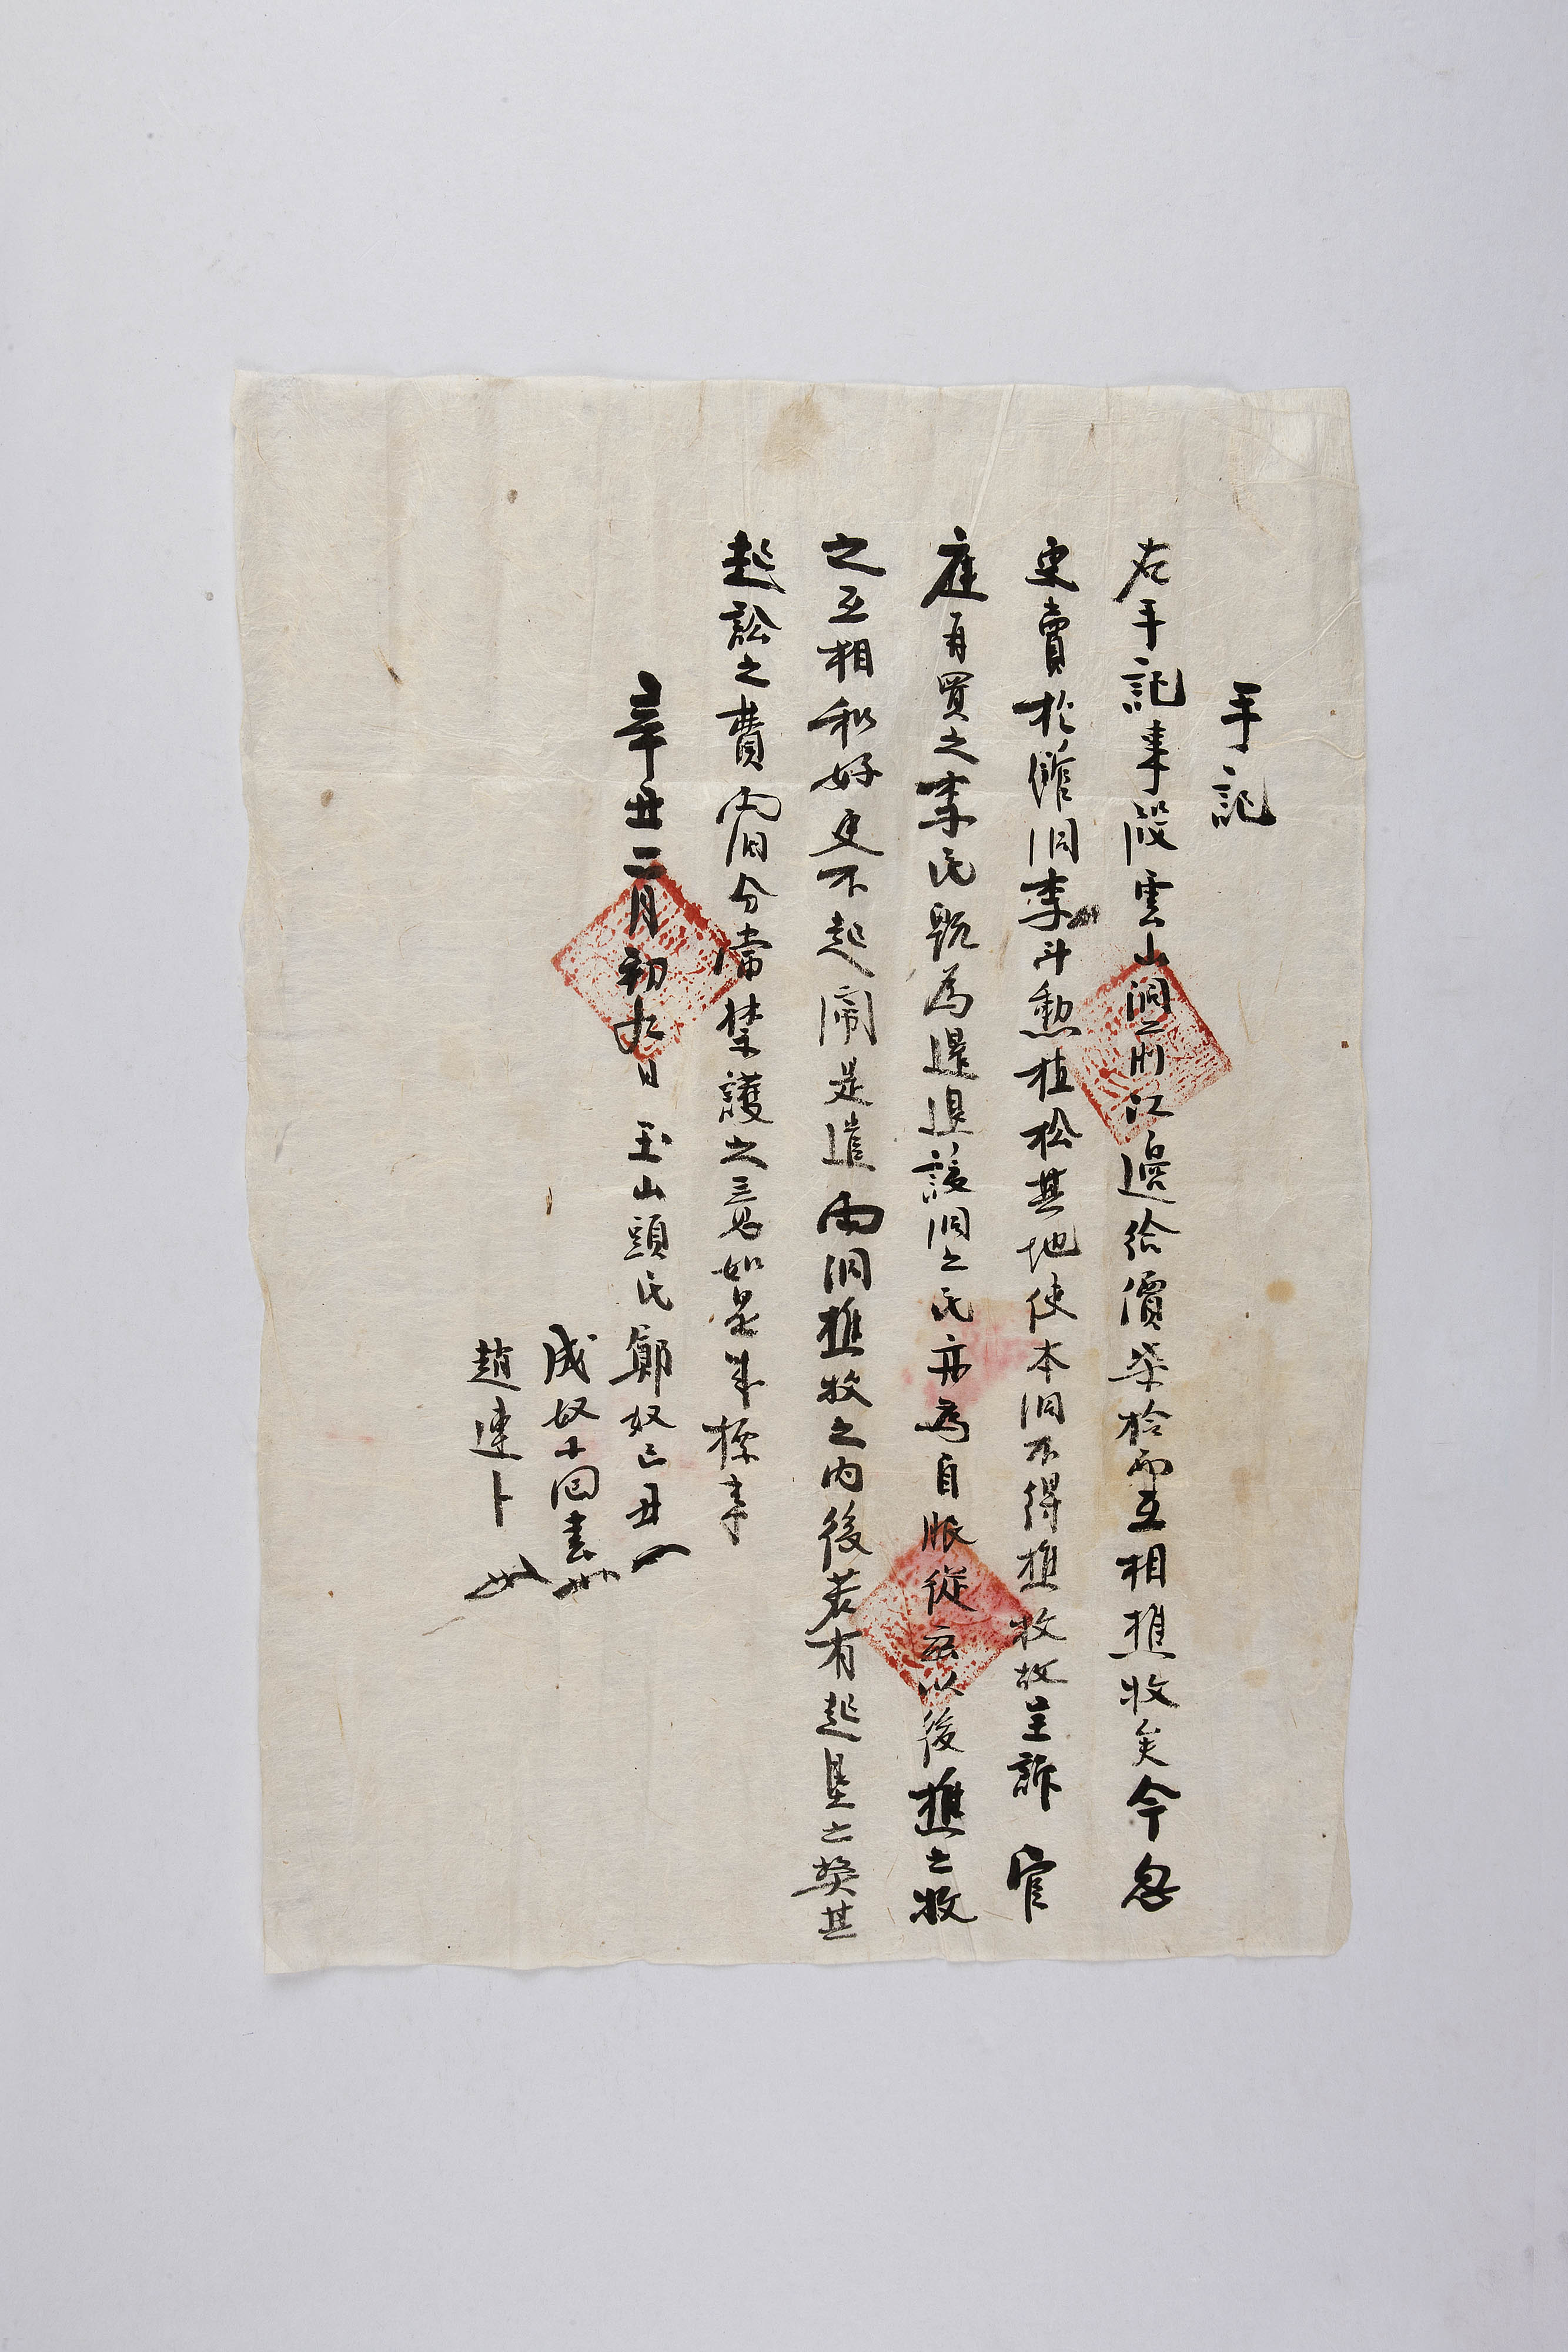 手記
右手記事段雲山洞之前江邊給價柒拾両互相樵牧矣今忽
更賣於隣洞李斗勳植松其地使本洞不得樵牧故呈訴 官
庭再買之李民既爲還退該洞之民亦爲自服從玆以後樵之牧
之互相和好更不起鬧是遣両洞樵牧之內後若有起墾之獘其
起訟之費両洞分當禁護之意如是成標事
辛丑二月初九日 玉山頭民 鄭奴己丑
成奴十回
趙連卜